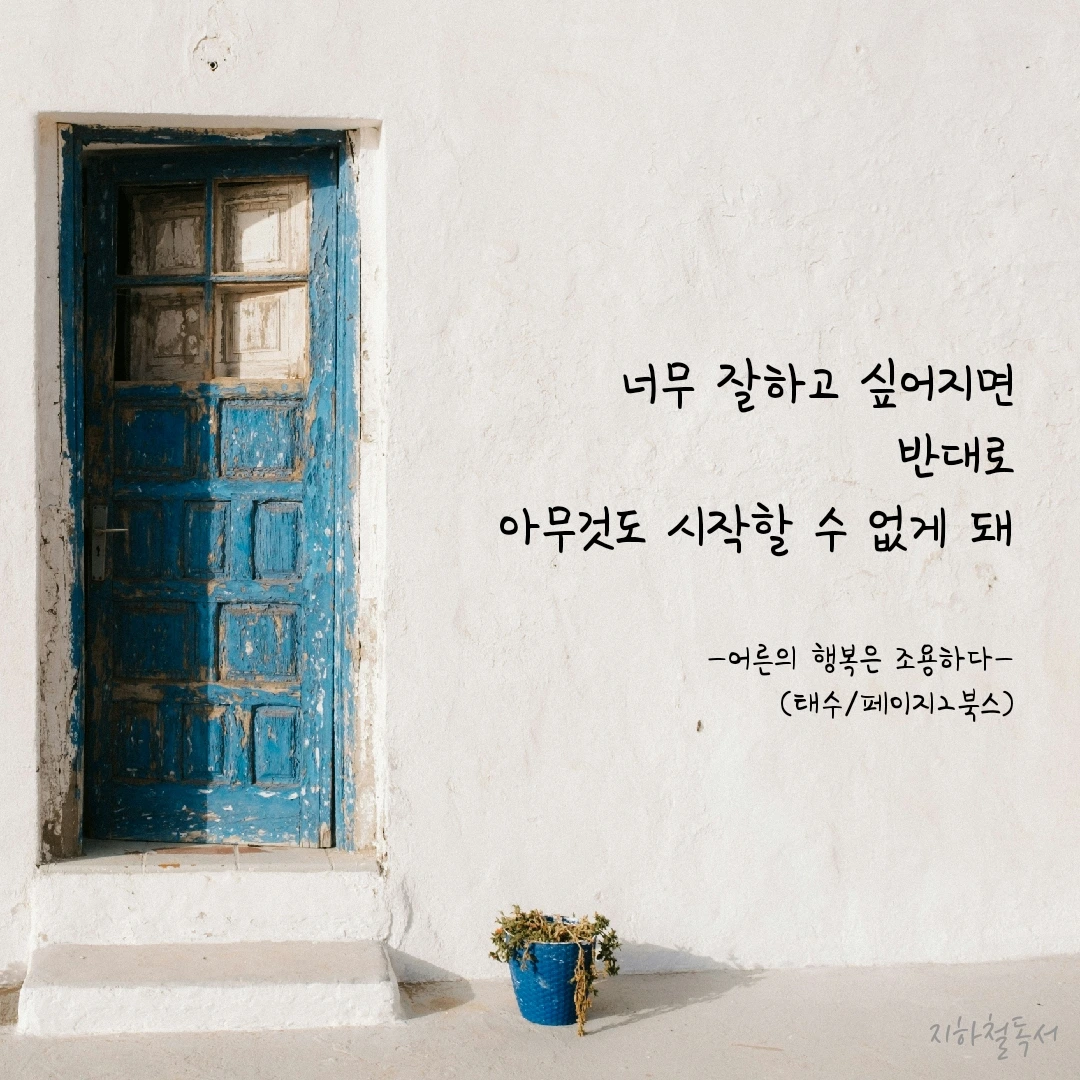 너무 잘하고 싶어지면
반대로
아무것도 시작할 수 없게 돼
-어른의 행복은 조용하다-
(태수/페이지2북스)
지하철독서